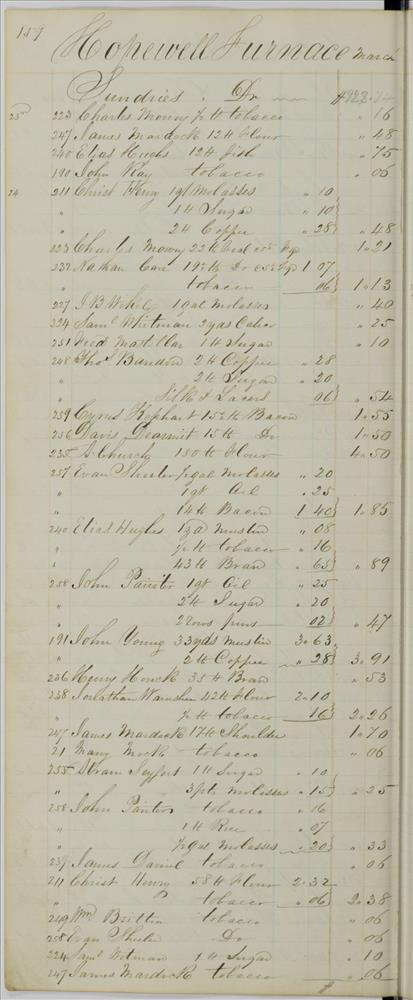 159
Hopewell Furnace March
Sundries . Dr $922.74
25 223 Charles Mowry ½ lb tobacco " 16
247 James Mardock 12 lb Flour " 48
240 Elias Hughs 12 lb fish " 75
190 John Kay tobacco " 06
24 211 Christ Henry 1 qt Molasses " 10
" 1 lb Sugar " 10
" 2 lb Coppee " 28 " 48
223 Charles Mowry 22 lb Veal 1 " 21
232 Nathan Care 19½ lb Do 1 07
" tobacco 06 1 " 13
227 J B 1 gal Molasses " 40
224 Saml Whitman 2 yds Calico " 25
251 1 lb Sugar " 10
248 Thos Bandon 2 lb Coppee " 28
" 2 lb Sugar " 20
" Silk & Lasers 06 " 54
259 Cyrus Kephart 15½ lb Bacon 1 " 55
256 Davis Dearmit 15 lb Do 1 " 50
235 S Church 150 lb Flour 4 " 50
257 Evan Sheeler ½ gal Molasses " 20
" 1 qt Oil " 25
" 14 lb Bacon 1 40 1 " 85
240 Elias Hughes 1½ a Muslin " 08
" ½ lb tobacco " 16
" 43 lb Bran " 65 " 89
258 John Painter 1 qt Oil " 25
" 2 lb Sugar " 20
" 2 rows pins 02 " 47
191 John Young 33 yds Muslin 3 " 63
" 2 lb Coppee " 28 3 " 91
236 Henry Houck 35 lb Bran " 53
238 Jonathan Wamsher 42 lb Flour 2 " 10
" ½ lb tobacco 16 2 " 26
247 James Mardock 17 lb Shoulder 1 " 70
21 Many Mock tobacco " 06
255 Hiram Seyfert 1 lb Sugar " 10
" 3 pts Molasses " 15 " 25
258 John Painter tobacco " 16
" 1 lb Rice " 07
" ½ gal Molasses " 20 " 33
237 James Daniel tobacco " 06
211 Christ Henry 58 lb Flour 2 " 32
" tobacco " 06 2 " 38
249 Wm Britton tobacco " 06
258 Evan Sheeler Do " 06
224 Saml Witman 1 lb Sugar " 10
247 James Mardock tobacco " 06
$